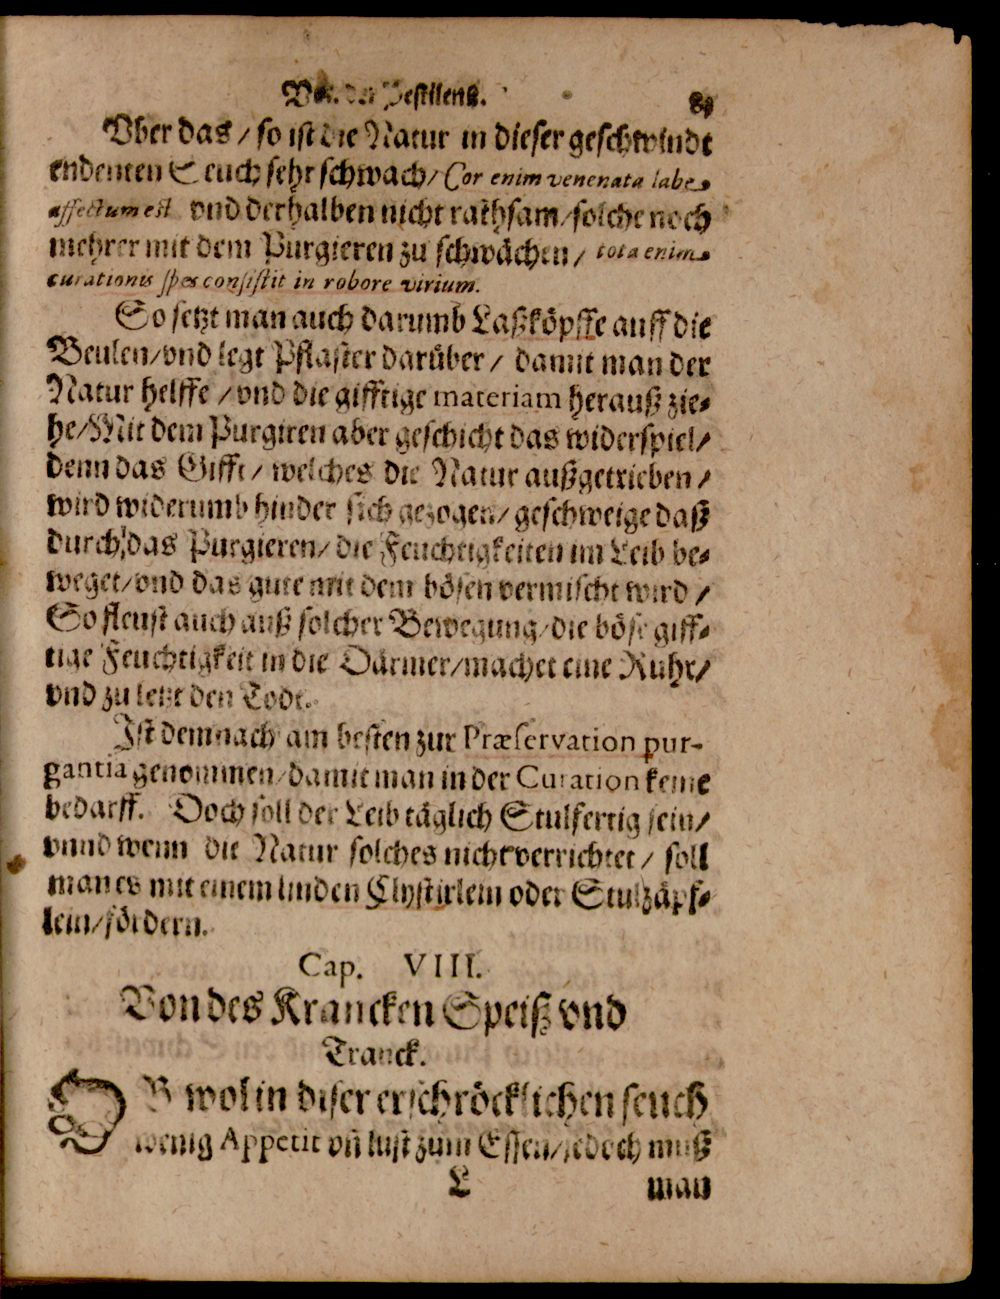 Von der Pestilentz. 81
Vber das / so ist die Natur in dieser geschwindt
endenten Seuch sehr schwach / Cor enim venenata labe
affectum est vnd derhalben nicht rathsam / solche noch
mehrer mit dem Purgieren zu schwächen / tota enim
curationis spes consistit in robore virium.
So setzt man auch darumb Laßköpffe auff die
Beulen / vnd legt Pflaster darüber / damit man der
Natur helffe / vnd die gifftige materiam herauß zie-
he / Mit dem Purgiren aber geschicht das widerspiel /
denn das Gifft / welches die Natur außgetrieben /
wird widerumb hinder sich gezogen / geschweige daß
durch das Purgieren / die Feuchtigkeiten im Leib be-
weget / vnd das gute mit dem bösen vermischt wird /
So fleust auch auß solcher Bewegung / die böse giff-
tige Feuchtigkeit in die Därmer / machet eine Ruhr /
vnd zu letzt den Todt.
Ist demnach am besten zur Præservation pur-
gantia genommen / damit man in der Curation keine
bedarff. Doch soll der Leib täglich Stulfertig sein /
vnnd wenn die Natur solches nicht verrichtet / soll
man es mit einem linden Clystirlein oder Stulzäpf-
lein / fördern.
Cap. VIII.
Von des Krancken Speiß vnd
Tranck.
OB wol in diser erschröcklichen seuch
wenig Appetit vñ lust zum Essen / jedoch muß
L man